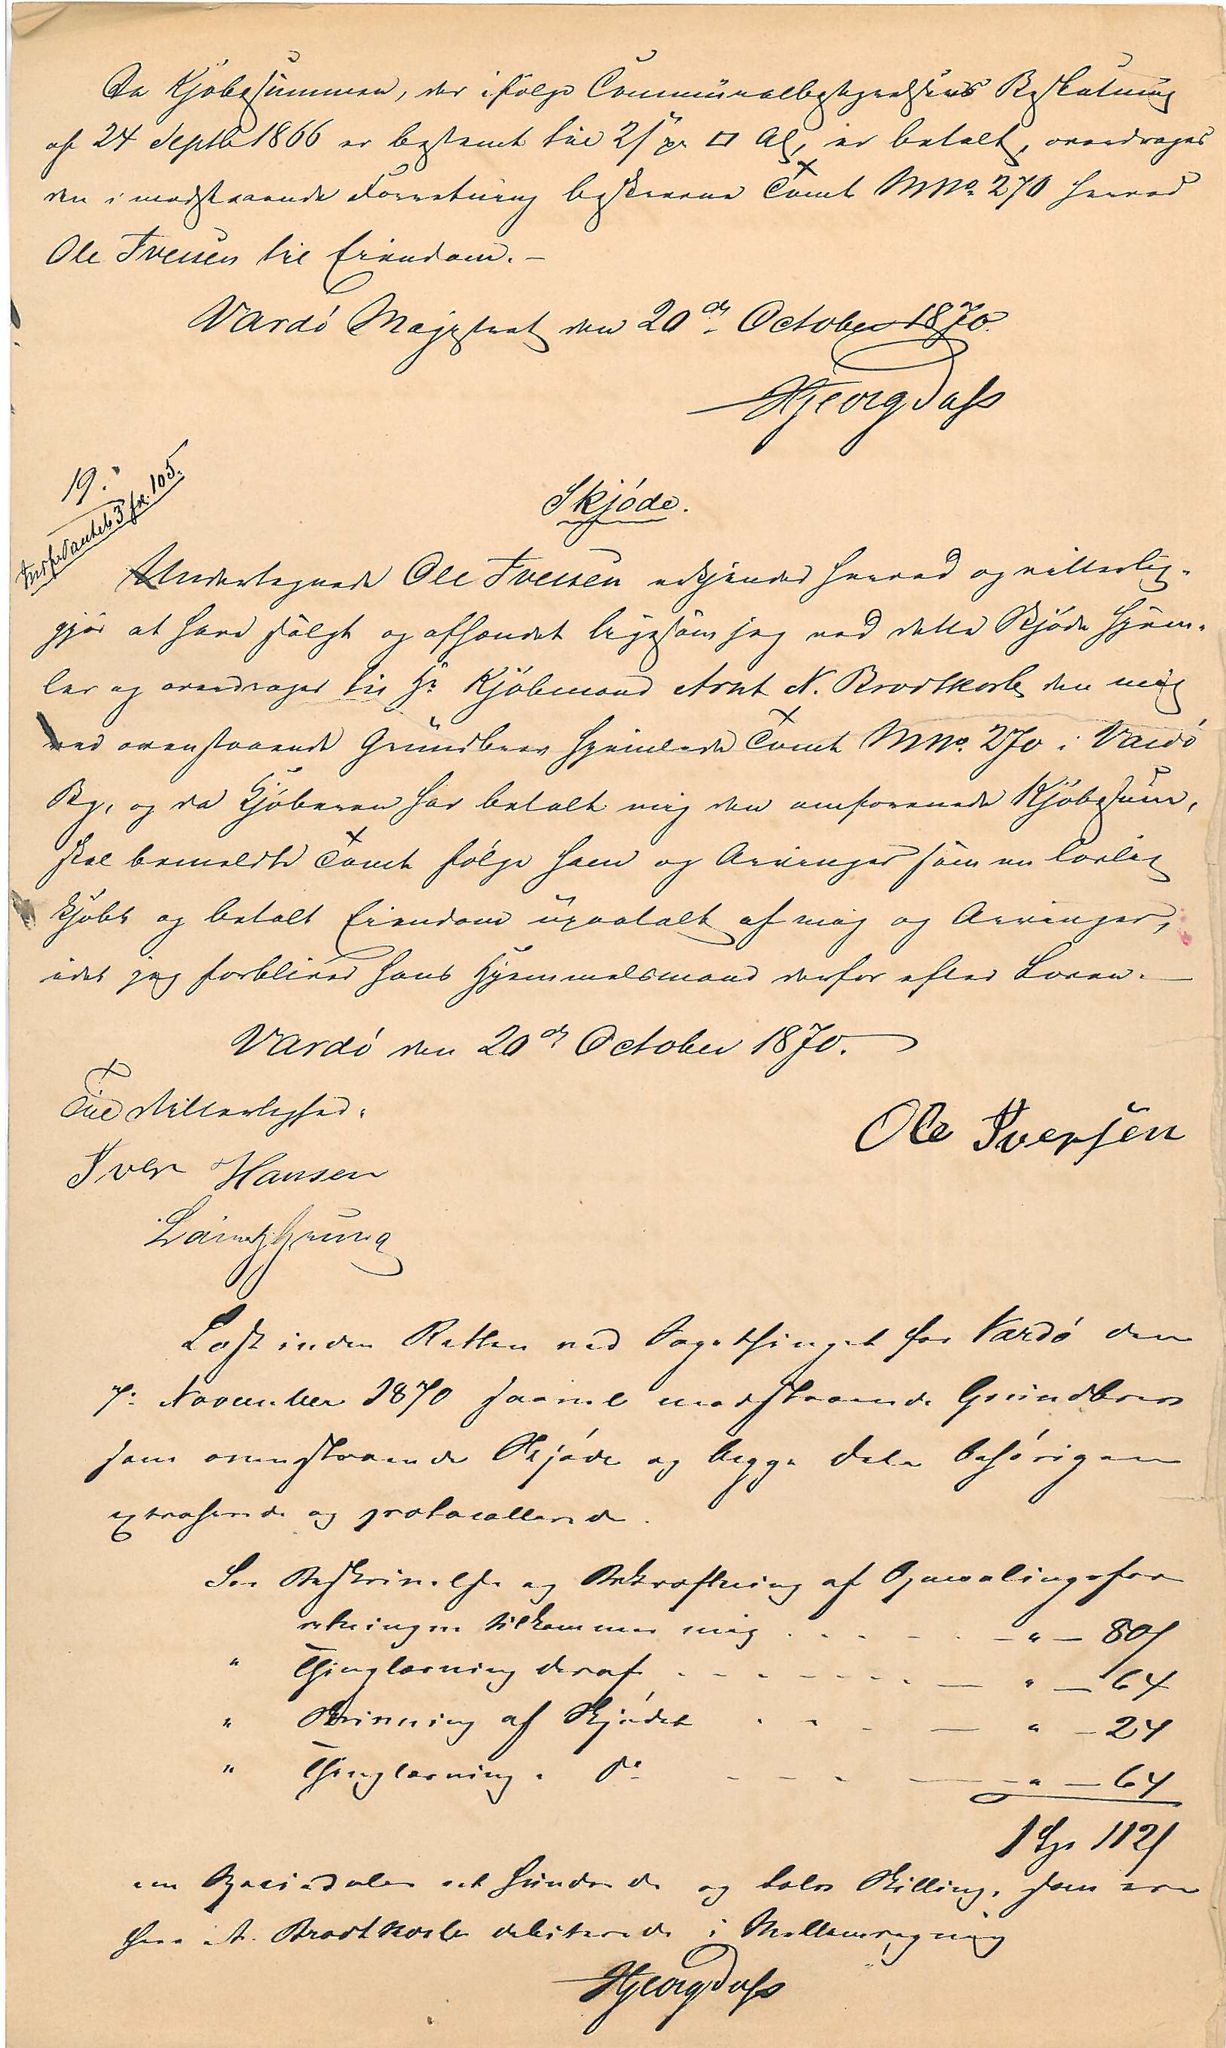 Da Kjøbesummen, der ifølge Communalbestyrelsens Beslutning
af 24 Septb 1866 er bestemt til 2 ß pr □ Al, er betalt, overdrages
den i modstaaende Forretning beskrevne Tomt MNo. 270 herved
Ole Iversen til Eiendom. –
Vardö Magistrat den 20de October 1870.
19.
Skjøde.
Undertegnede Ole Iversen erkjender herved og vitterlig-
gjør at have solgt og afhændet ligesom jeg ved dette Skjøde hjem-
ler og overdrager til Hr Kjøbmand Arnt N. Brodtkorb den mig
ved ovenstaaende Grundbrev hjemlede Tomt MNo. 270 i Vardö
By, og da Kjøberen har betalt mig den omforenede Kjøbesum,
skal bemeldte Tomt følge ham og Arvinger som en lovlig
kjøbt og betalt Eiendom upaatalt af mig og Arvinger,
idet jeg forbliver hans Hjemmelsmand derfor efter Loven. –
Vardö den 20de October 1870.
Til Vitterlighed:
Ole Iversen
Iver Hansen
Læst inden Retten ved Bygethinget for Vardö den
7: November 1870 saavel modstaaende Grundbrev
som ovenstaaende Skjøde og begge dele behörigen
extraherede og protocollerede.
For Beskrivelse og Bekræftning af Opmaalingsfor
retningen tilkommer mig . . . . – " – 80 ß
" Thinglæsning deraf . . . . . . – " – 64
" Skrivning af Skjødet . . . – " – 24
" Thinglæsning " do – – – – " – 64
1 Spd 112 ß
en Speciedaler et hundrede og tolv Skilling, som ere
Herr A. Brodtkorb debiterede i Mellemregning